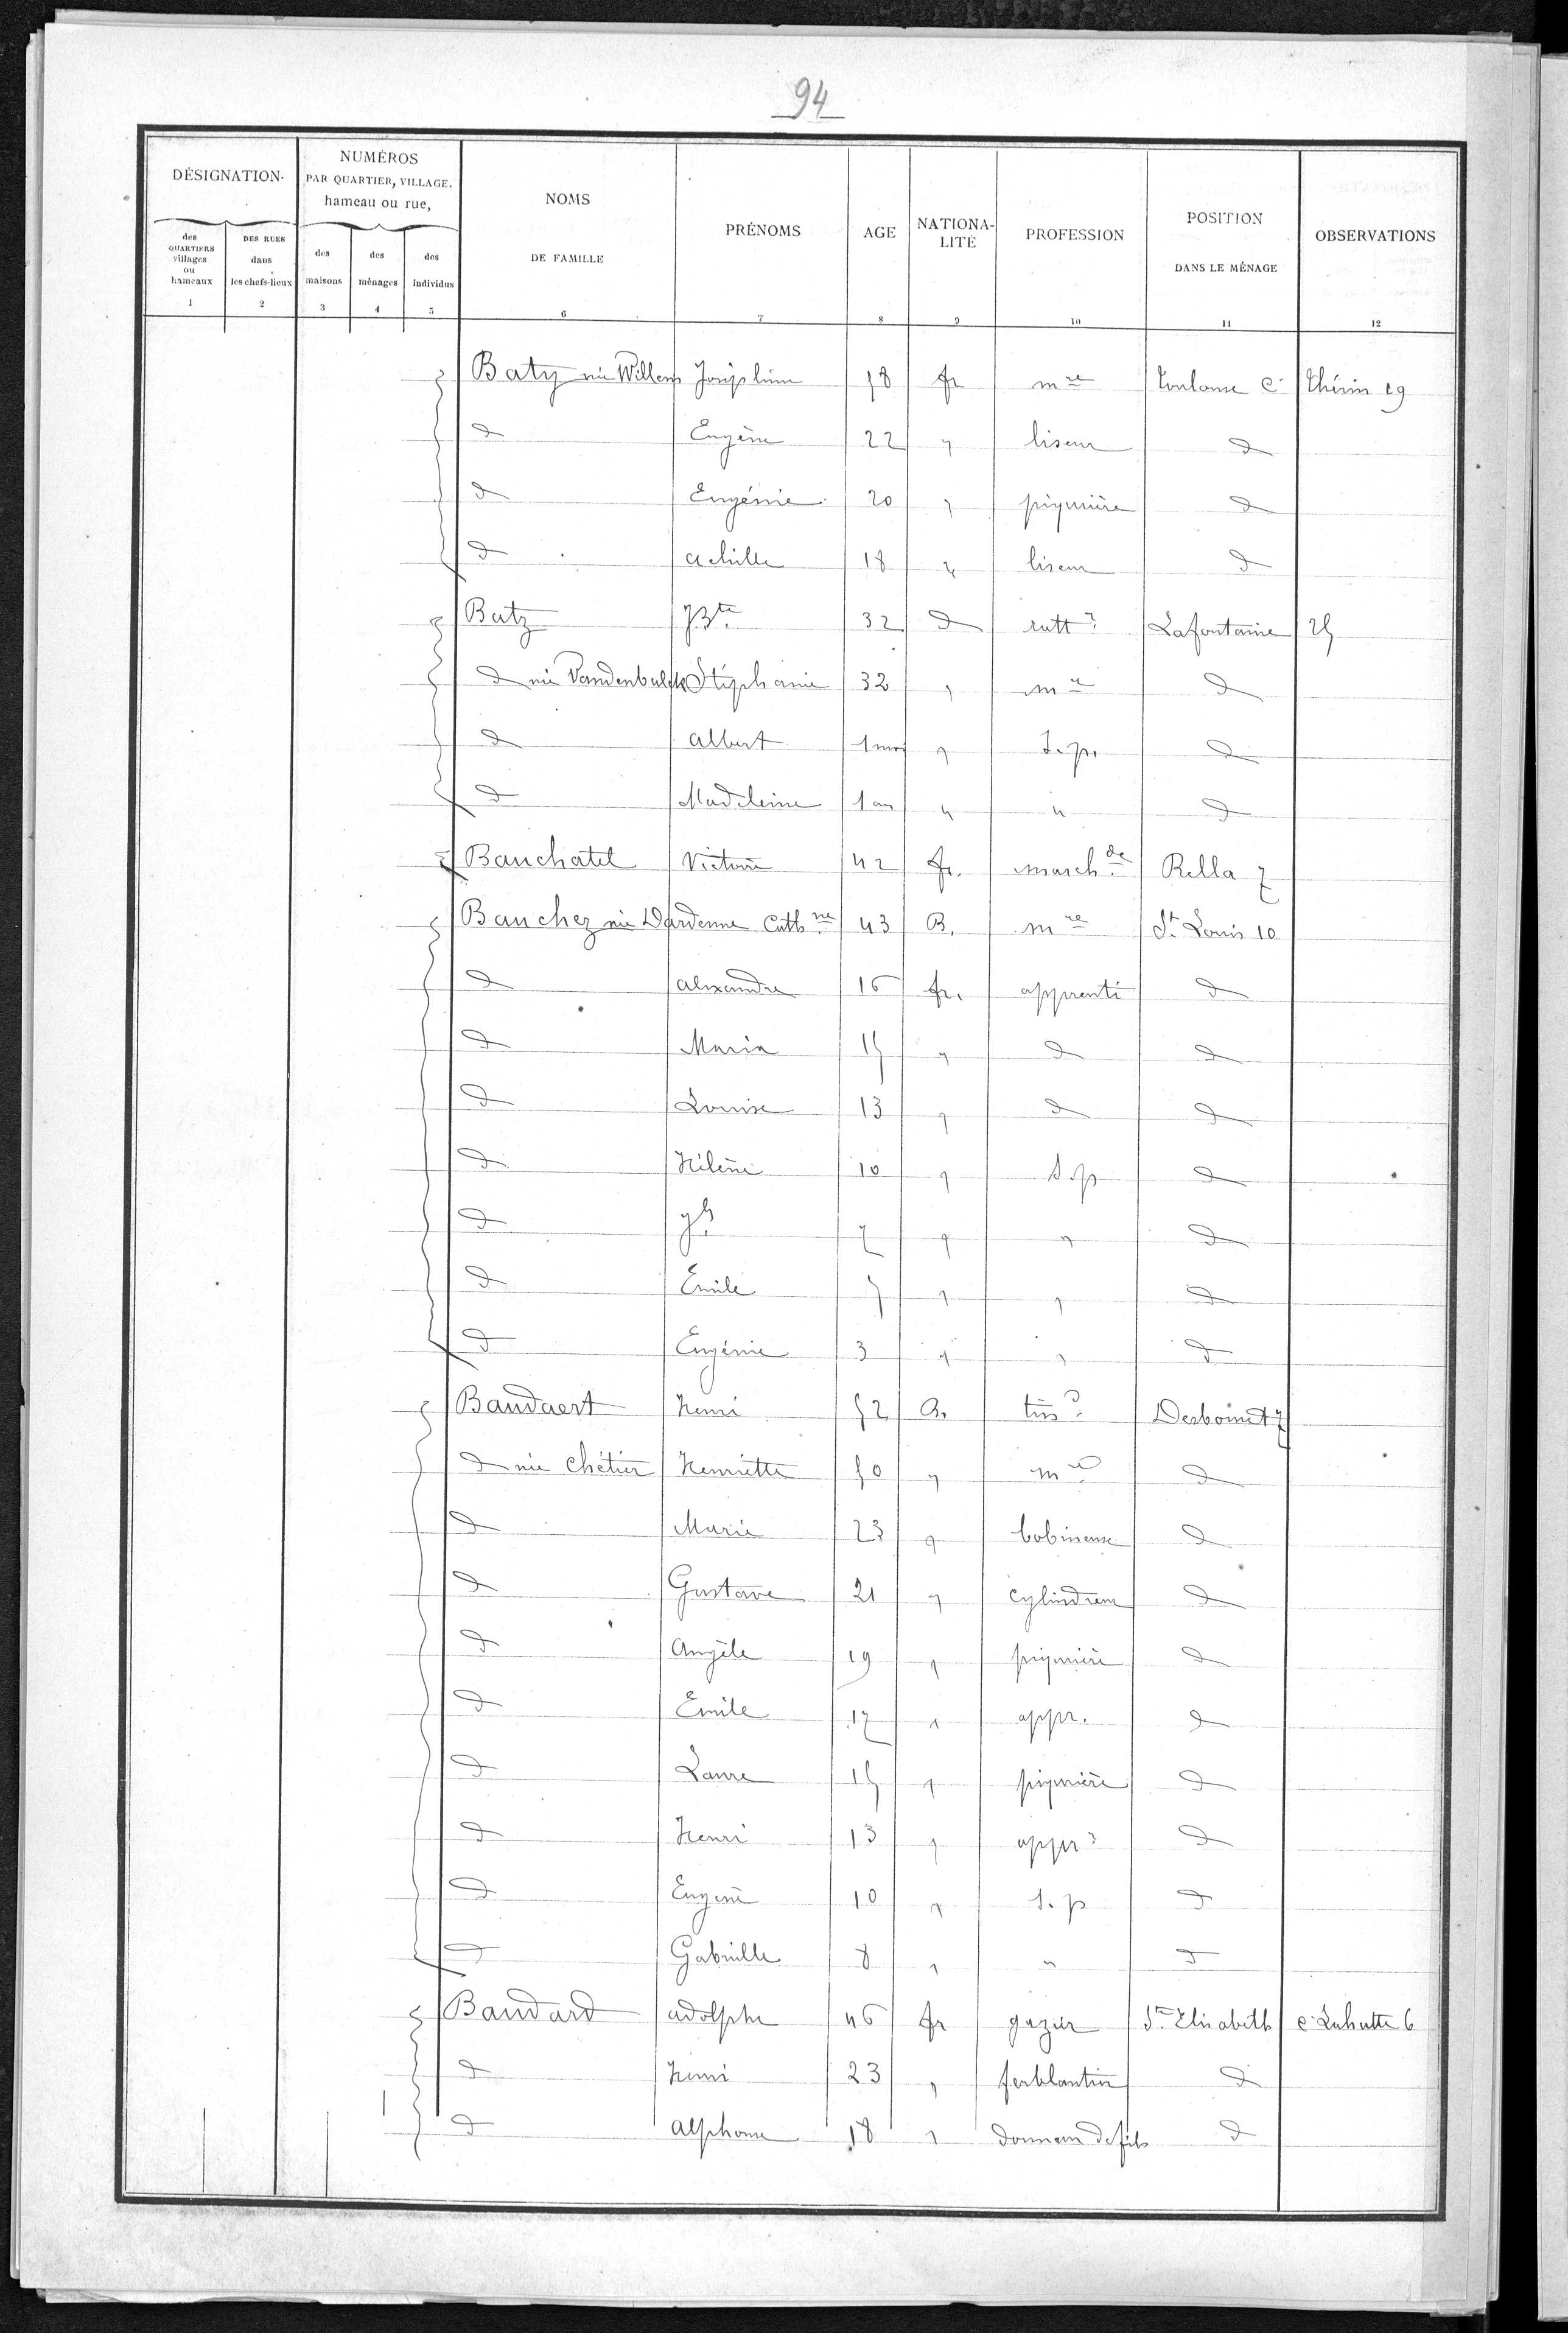 94
DÉSIGNATION
NUMÉROS PAR QUARTIER, VILLAGE. hameau ou rue,
NOMS DE FAMILLE
PRÉNOMS
AGE
NATIONA-LITÉ
PROFESSION
POSITION DANS LE MÉNAGE
OBSERVATIONS
des QUARTIERS villages ou hameaux
DES RUES dans les chefs-lieux
des maisons
des ménages
des individus
1 2 3 4 5 6 7 8 9 10 11 12
Baty née Willem Joséphine 58 fr mre Toulouse c. Thérin 19
d Eugène 22 " liseur d
d Eugénie 20 " piqurière d
d Achille 18 " liseur d
Batz JBte 32 d ratt? Lafontaine 25
d née Vandenbulck Stéphanie 32 " me d
d Albert 1 moi " s.p. d
d Madeleine 1 an " " d
Bauchatel Victoire 42 fr. marchde Rella 7
Bauchez née Dardenne Cathne 43 B. mre St Louis 10
d Alexandre 16 fr. apprenti d
d Maria 15 " d d
d Louise 13 " d d
d Hélène 10 " s.p d
d Jh 7 " " d
d Emile 5 " " d
d Eugénie 3 " " d
Baudaert Henri 52 B. tiss? Desboinet 7
d née Chétier Henriette 50 " me d
d Marie 23 " bobineuse d
d Gustave 21 " cylindreur d
d Angèle 19 " piqurière d
d Emile 17 " appr. d
d Laure 15 " piqurière d
d Henri 13 " appr d
d Eugène 10 " s.p d
d Gabrielle 8 " " d
Baudard Adolphe 46 fr gazier Ste Elisabeth c. Lahutte 6
d Henri 23 " ferblantier d
d Alphonse 18 " donneur de fils d